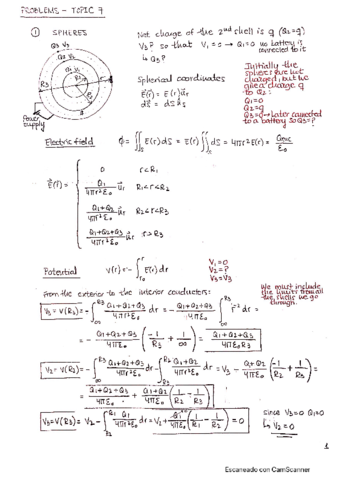 PROBLEMS - TOPIC 7
① SPHERES
Q3 V3
Q2 V2
R3
Power supply
Net charge of the 2nd shell is q (Q2=q)
V3? so that V1=0 → Q1=0 no battery is connected to it
↳ Q3?
Spherical coordinates
E(r) = E(r) ur
dS = dS us
Initially the spheres are not charged, but we give a charge q to Q2:
Q1=0
Q2=q
Q3=0 → later connected to a battery so Q3=?
Electric field
ϕ = ∬s E(r)dS = E(r) ∬s dS = 4πr²E(r) = Qenc/ε0
E(r) =
0 r<R1
Q1/4πr²ε0 ur R1<r<R2
Q1+Q2/4πr²ε0 ur R2<r<R3
Q1+Q2+Q3/4πr²ε0 ur r>R3
Potential
V(r) = - ∫ E(r) dr
V1=0
V2=?
V3=V3
From the exterior to the interior conductors:
We must include the limits from all the shells we go through.
V3 = V(R3) = - ∫∞R3 Q1+Q2+Q3/4πr²ε0 dr = - Q1+Q2+Q3/4πε0 ∫∞R3 r⁻² dr =
= - Q1+Q2+Q3/4πε0 (-1/R3 + 1/∞) = Q1+Q2+Q3/4πε0R3
V2 = V(R2) = - ∫∞R3 Q1+Q2+Q3/4πr²ε0 dr - ∫R3R2 Q1+Q2/4πr²ε0 dr = V3 - Q1+Q2/4πε0 (-1/R2 + 1/R3) =
= Q1+Q2+Q3/4πε0 + Q1+Q2/4πε0 (1/R2 - 1/R3)
V3=V(R3) = V2 - ∫ Q1/4πr²ε0 dr = V2 + Q1/4πε0 (1/R1 - 1/R2) = 0
since V3=0 Q1=0
↳ V2=0
1
Escaneado con CamScanner